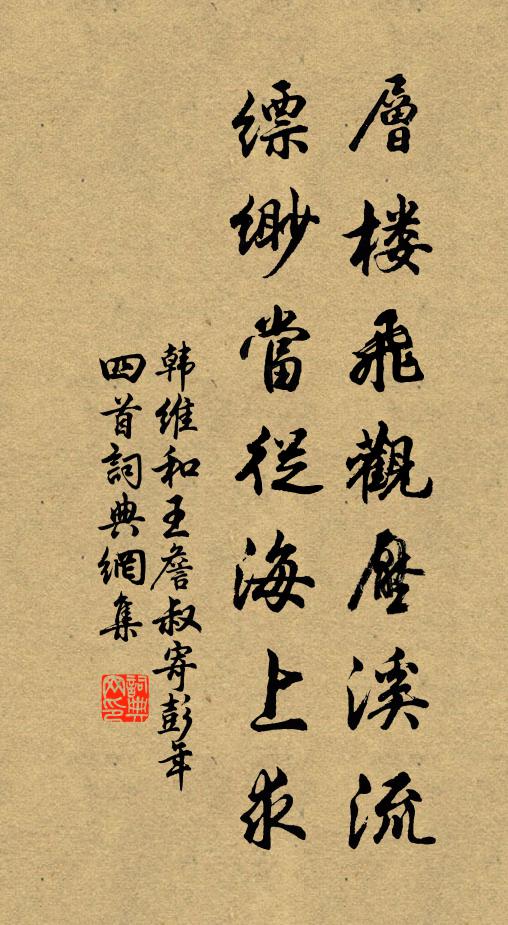 層楼飛觀壓溪流
縹緲當從海上求
韩維和王詹叔寄彭年
四首詞典網集
詞典網印